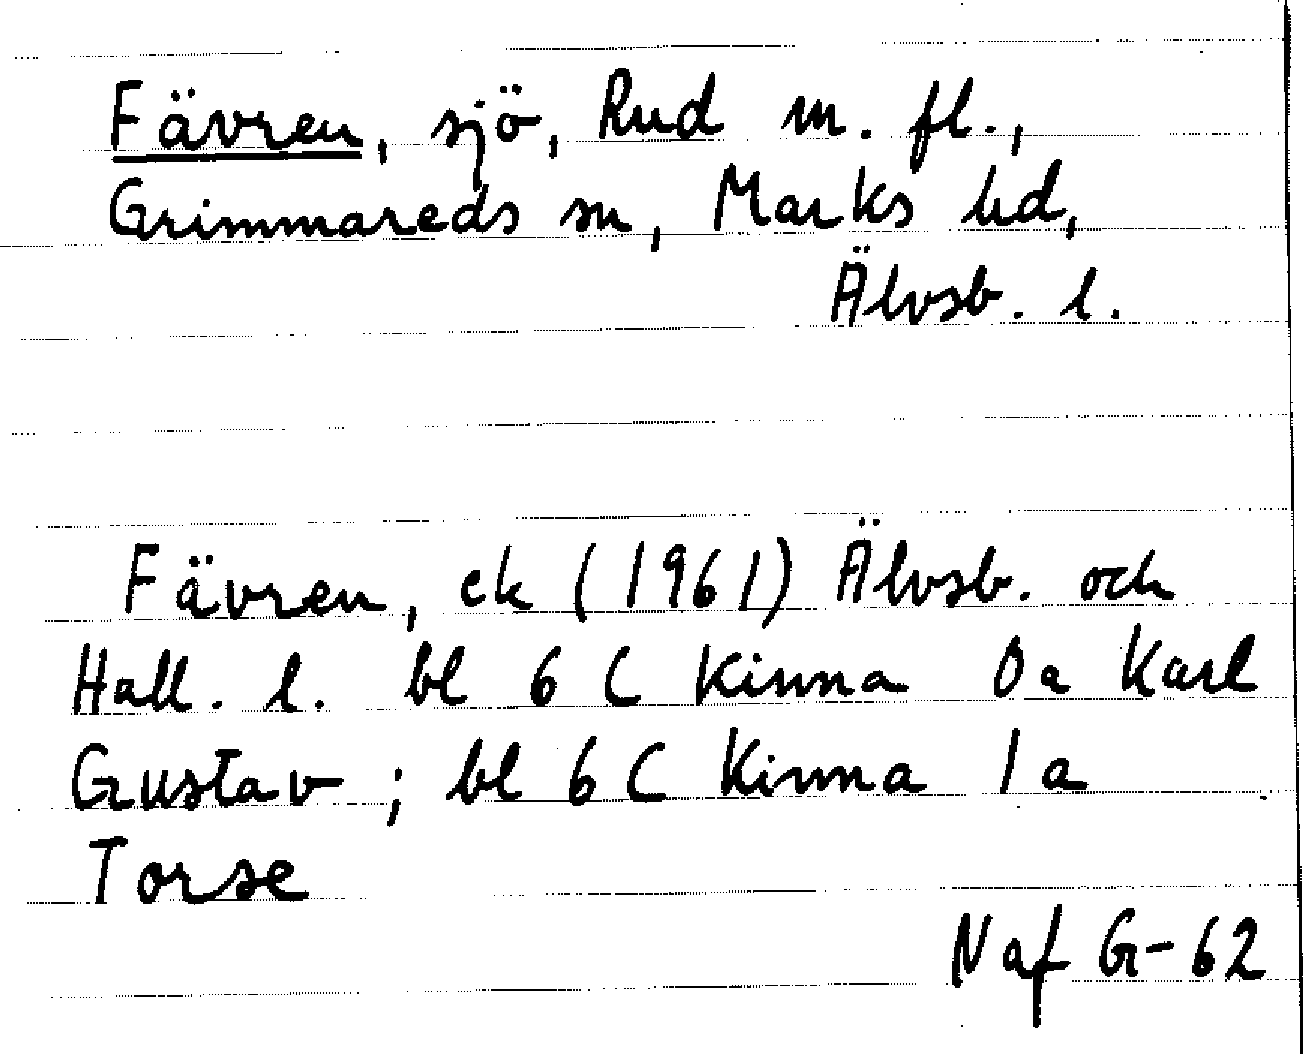 Fävren, sjö, Rud m. fl.,
Grimmareds sn, Marks hd,
Älvsb. l.
Fävren, ek (1961) Älvsb. och
Hall. l. bl 6 C Kinna 0a Karl
Gustav; bl 6 C Kinna 1a
Torse
Naf G-62